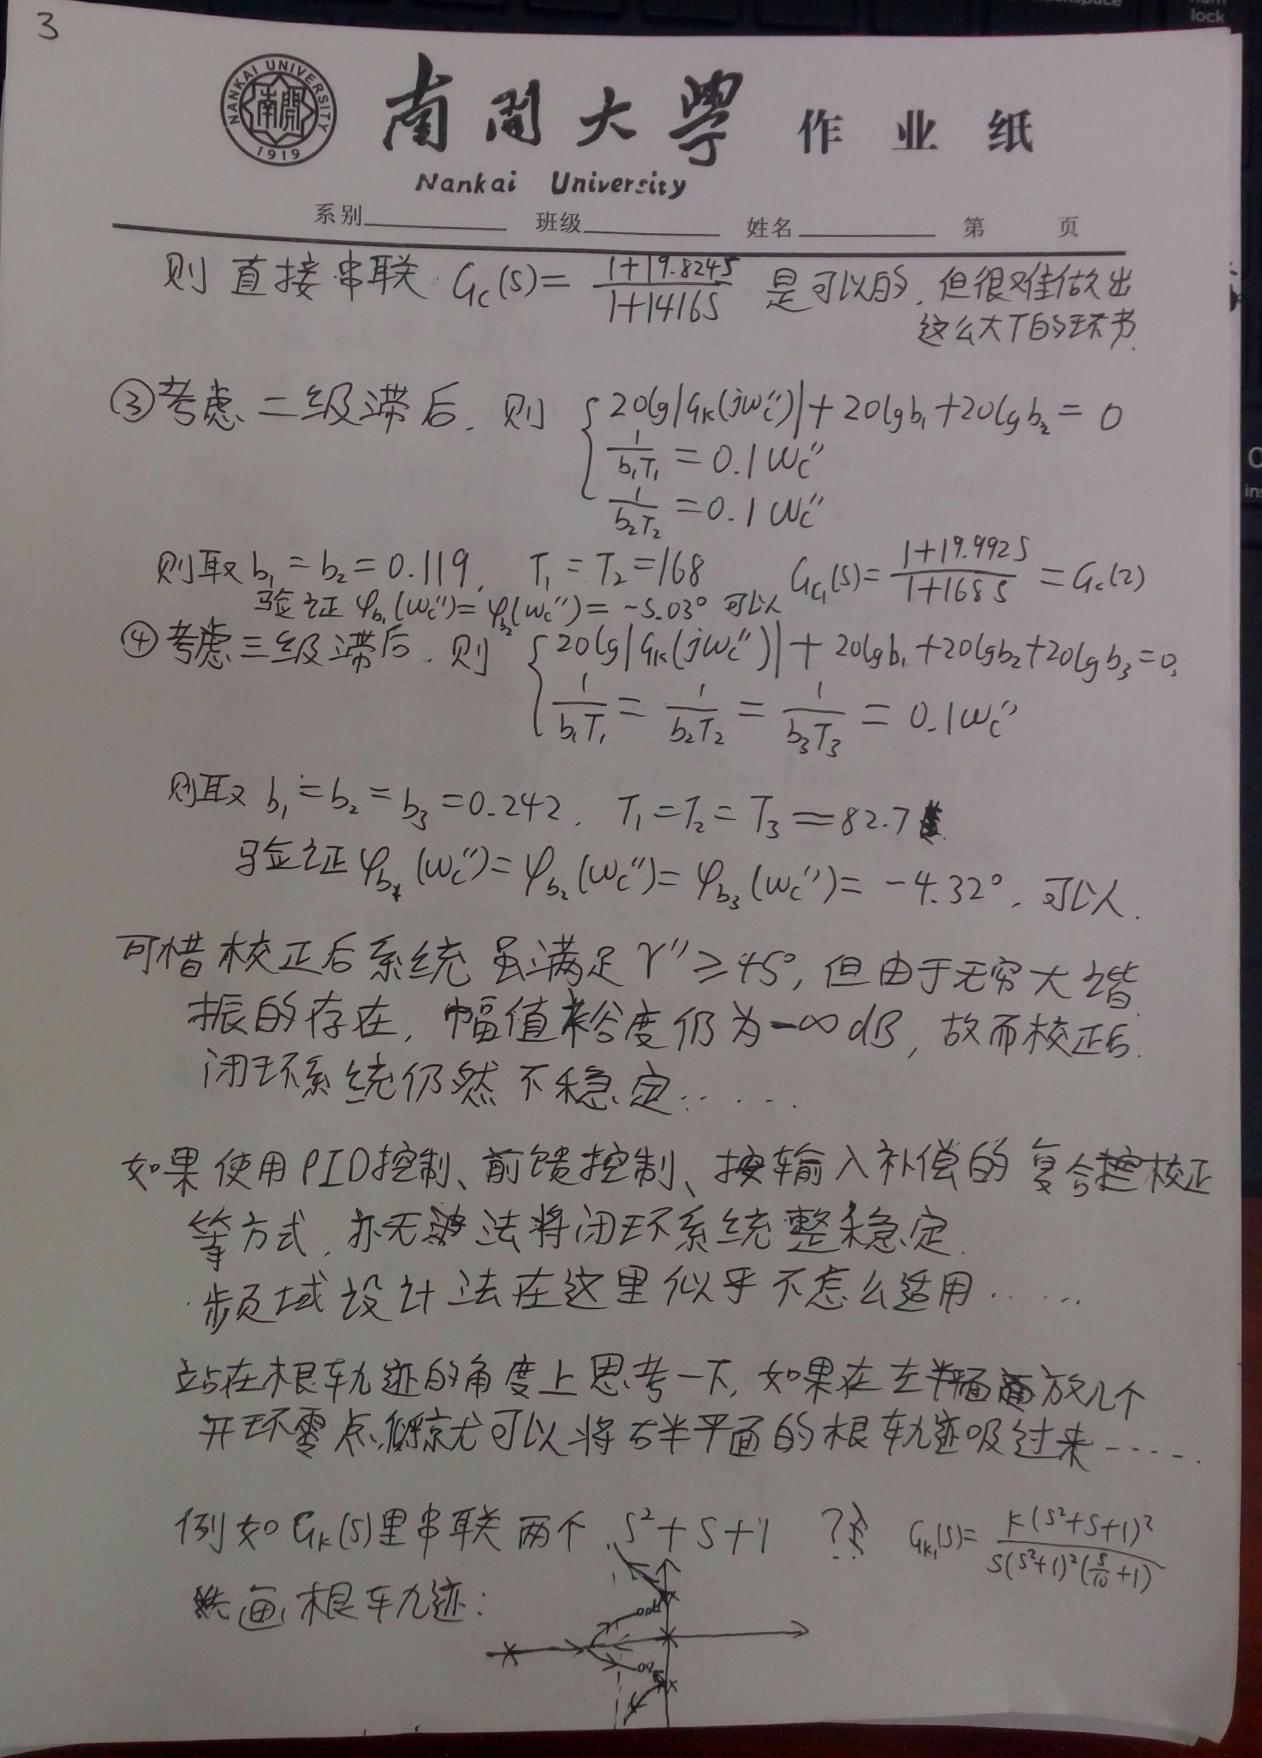 3
NANKAI UNIVERSITY
南開
1919
南開大學 作业纸
Nankai University
系别 班级 姓名 第 页
则直接串联 Gc(S)= (1+19.824S)/(1+1416S) 是可以的, 但很难做出
这么大T的环节.
③考虑二级滞后. 则 { 20lg|Gk(jωc'')|+20lgb₁+20lgb₂=0
1/(b₁T₁)=0.1ωc''
1/(b₂T₂)=0.1ωc''
则取 b₁=b₂=0.119, T₁=T₂=168 Gc₁(S)= (1+19.992S)/(1+168S) =Gc(2)
验证 φb₁(ωc'')=φb₂(ωc'')=-5.03° 可以
④考虑三级滞后. 则 { 20lg|Gk(jωc'')|+20lgb₁+20lgb₂+20lgb₃=0,
1/(b₁T₁)=1/(b₂T₂)=1/(b₃T₃)=0.1ωc''
则取 b₁=b₂=b₃=0.242, T₁=T₂=T₃=82.7
验证 φb₁(ωc'')=φb₂(ωc'')=φb₃(ωc'')=-4.32°, 可以.
可惜校正后系统虽满足γ''≥45°, 但由于无穷大谐
振的存在, 幅值裕度仍为-∞dB, 故而校正后
闭环系统仍然不稳定......
如果使用PID控制、前馈控制、按输入补偿的复合校正
等方式, 亦无法将闭环系统整稳定.
频域设计法在这里似乎不怎么适用......
站在根轨迹的角度上思考一下, 如果在左半面放几个
开环零点, 就可以将右半平面的根轨迹吸过来......
例如Gk(S)里串联两个 S²+S+1 ?? Gk₁(S)= K(S²+S+1)²/(S(S²+1)²(S/10+1))
画根轨迹: